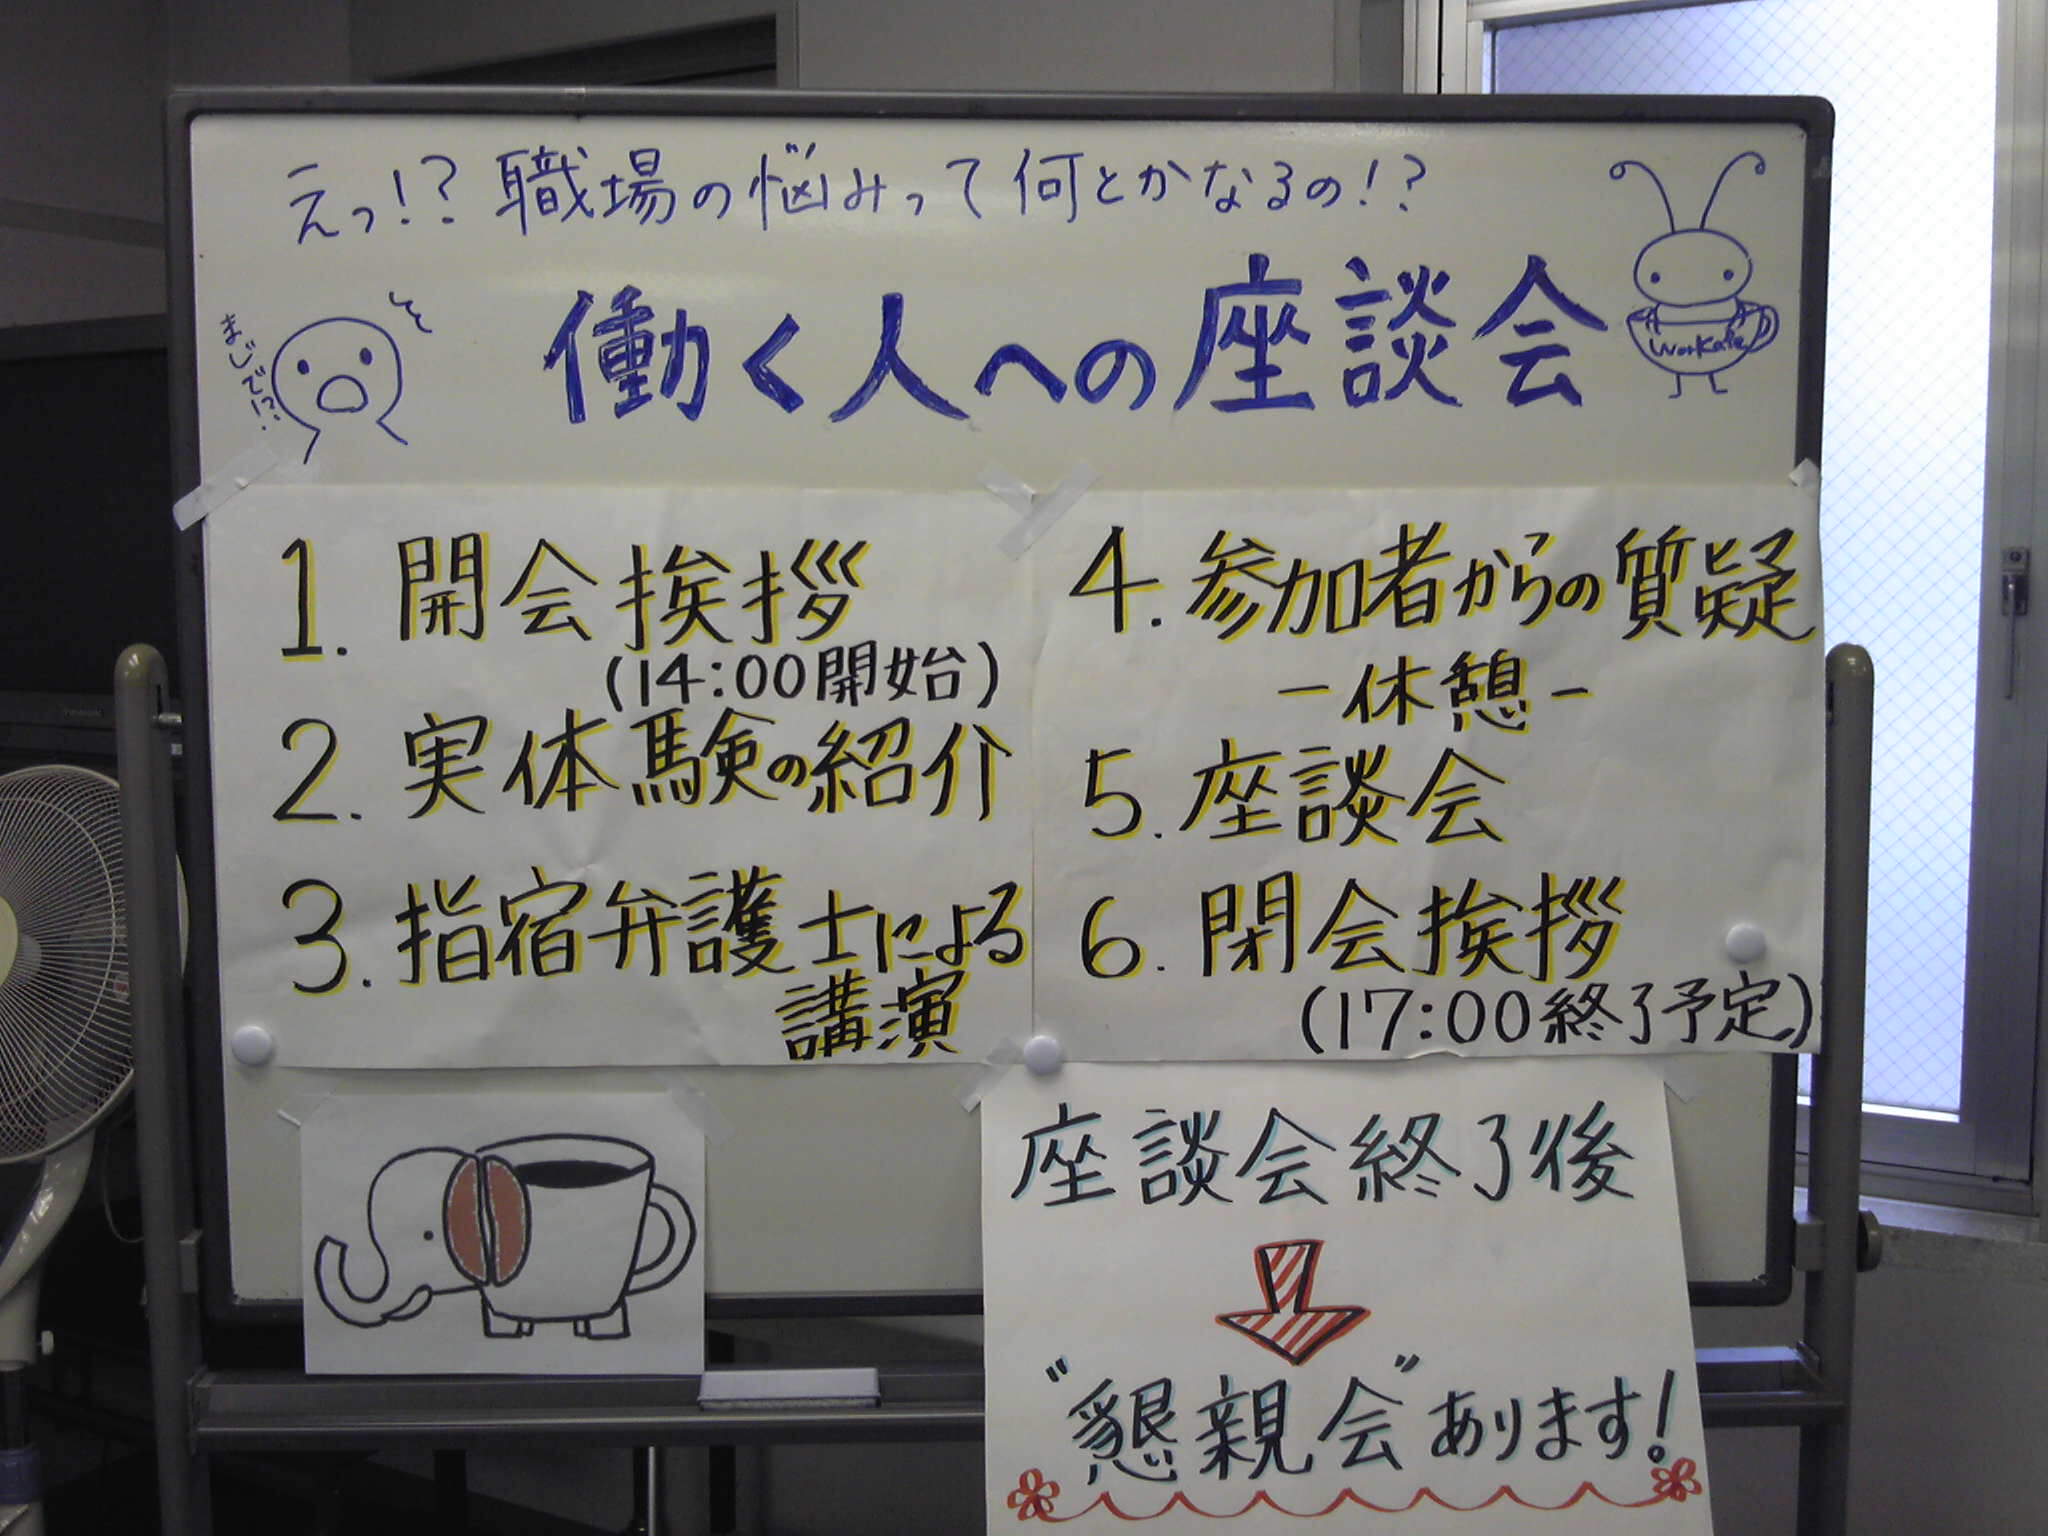 えっ!?職場の悩みって何とかなるの!?
まじで!?
働く人への座談会
workafe
1. 開会挨拶
(14:00開始)
2. 実体験の紹介
3. 指宿弁護士による
講演
4. 参加者からの質疑
-休憩-
5. 座談会
6. 閉会挨拶
(17:00終了予定)
座談会終了後
"懇親会"あります!